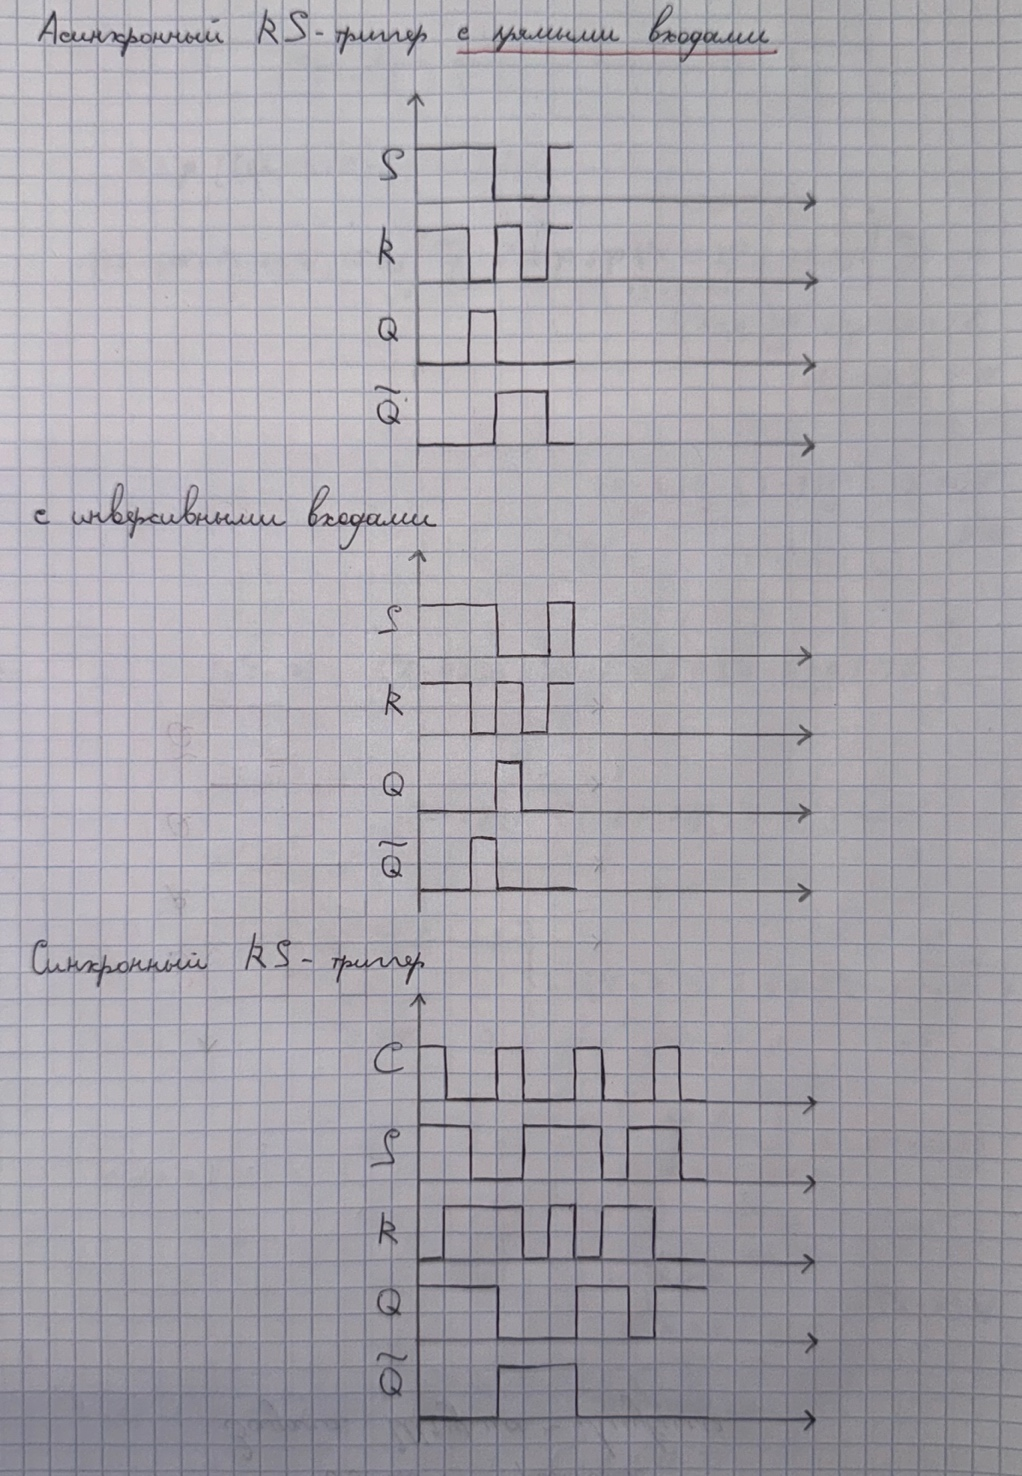 Асинхронный RS-триггер с прямыми входами
S
R
Q
Q̃
с инверсивными входами
S
R
Q
Q̃
Синхронный RS-триггер
C
S
R
Q
Q̃